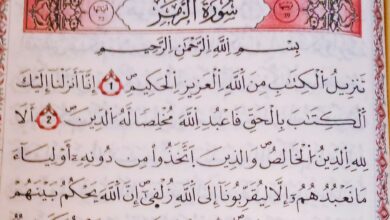 سُورَةُ الزُّمَرِ
بِسْمِ اللَّهِ الرَّحْمَٰنِ الرَّحِيمِ
تَنزِيلُ الْكِتَابِ مِنَ اللَّهِ الْعَزِيزِ الْحَكِيمِ ١ إِنَّا أَنزَلْنَا إِلَيْكَ
الْكِتَابَ بِالْحَقِّ فَاعْبُدِ اللَّهَ مُخْلِصًا لَّهُ الدِّينَ ٢ أَلَا
لِلَّهِ الدِّينُ الْخَالِصُ وَالَّذِينَ اتَّخَذُوا مِن دُونِهِ أَوْلِيَاءَ
مَا نَعْبُدُهُمْ إِلَّا لِيُقَرِّبُونَا إِلَى اللَّهِ زُلْفَىٰ إِنَّ اللَّهَ يَحْكُمُ بَيْنَهُمْ